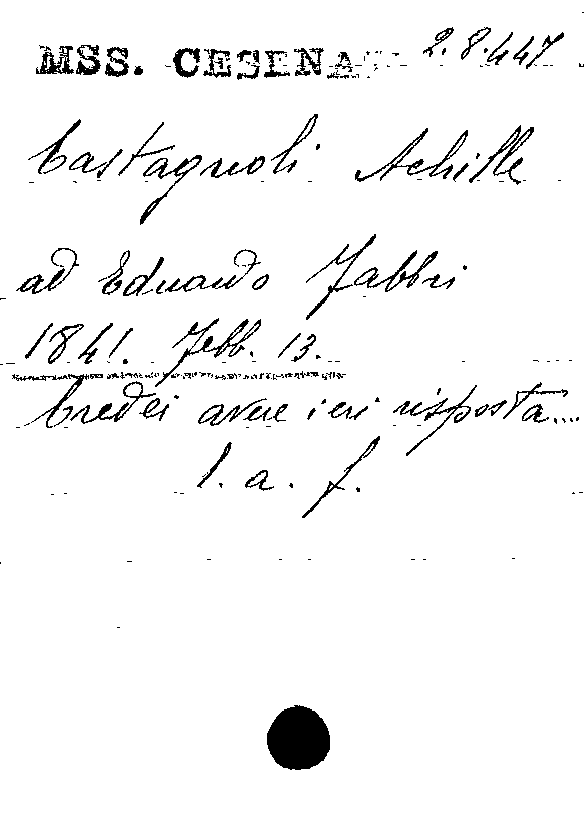 MSS. CESENA 2.8.447
Castagnoli Achille
ad Eduardo Fabbri
1841. Febb. 13.
Credei avere ieri risposta...
l. a. f.